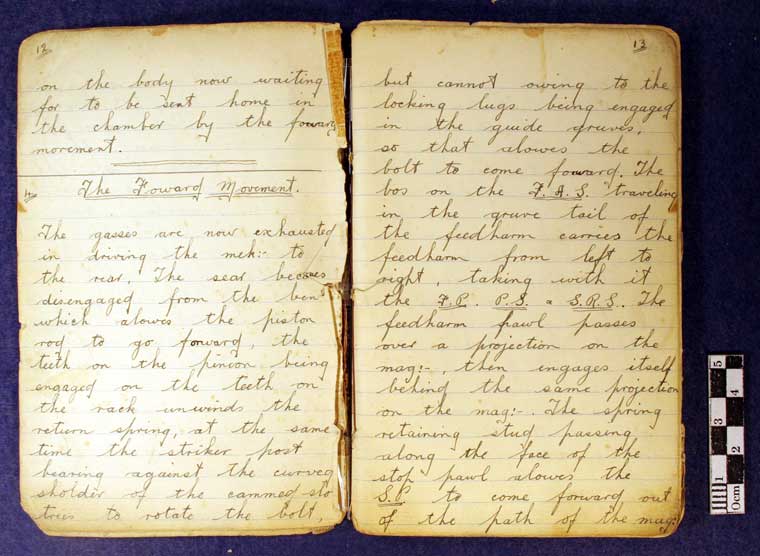 12
on the body now waiting
for to be sent home in
the chamber by the foward
movement.
4.
The Foward Movement.
The gasses are now exhausted
in driving the mek:- to
the rear. The sear becomes
disengaged from the ben
which alowes the piston
rod to go forward, the
teeth on the pinion being
engaged on the teeth on
the rack unwinds the
return spring, at the same
time the striker post
bearing against the curved
sholder of the cammed slo
tries to rotate the bolt,
13
but cannot owing to the
locking lugs being engaged
in the guide gruves,
so that alowes the
bolt to come foward. The
bos on the F.A.S. traveling
in the gruve tail of
the feedharm carries the
feedharm from left to
right, taking with it
the F.P. P.S. & S.R.S. The
feedharm pawl passes
over a projection on the
mag:-, then engages itself
behind the same projection
on the mag:-. The spring
retaining stud passing
along the face of the
stop pawl alowes the
S.P to come forward out
of the path of the mag:
5
4
3
2
1
0cm